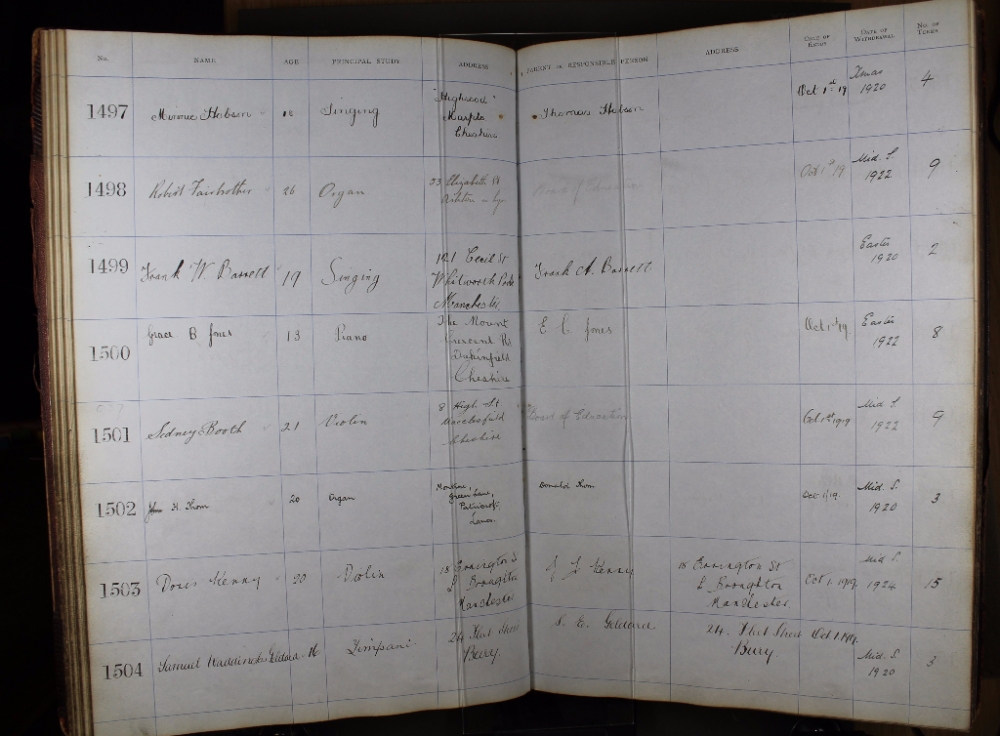 No. NAME AGE PRINCIPAL STUDY ADDRESS PARENT or RESPONSIBLE PERSON ADDRESS DATE OF ENTRY DATE OF WITHDRAWAL NO. OF TERMS
1497 Minnie Hobson Singing "Highwood" Thomas Hobson Oct 1st 19 Xmas 4
Marple 1920
Cheshire
1498 Robert Fairbrother 26 Organ 33 Elizabeth St Board of Education Oct 1st 19 Mid. S. 9
Ashton - u - Ly 1922
1499 Frank W. Barrett 19 Singing 121 Cecil St Frank A. Barrett Easter 2
Whitworth Park 1920
Manchester
1500 Grace B Jones 13 Piano The Mount E. C. Jones Oct 1st 19. Easter 8
Crescent Rd 1922
Dukinfield
Cheshire
1501 Sydney Booth 21 Violin 8 High St Board of Education Oct 1st 1919 Mid S. 9
Macclesfield 1922
Cheshire
1502 John H. Thom 20 Organ Donald Thom Oct 1/19. Mid. S. 3
Green Lane, 1920
Patricroft
Lancs.
1503 Doris Kenny 20 Violin 18 Errington St J L Kenny 18 Errington St Oct 1. 1919. Mid S. 15
L. Broughton L. Broughton 1924
Manchester Manchester
1504 Samuel Waddington Geldard 16 Timpani 24 Fleet Street S. E. Geldard 24. Fleet Street Oct 1. 1919. Mid. S. 3
Bury. Bury. 1920